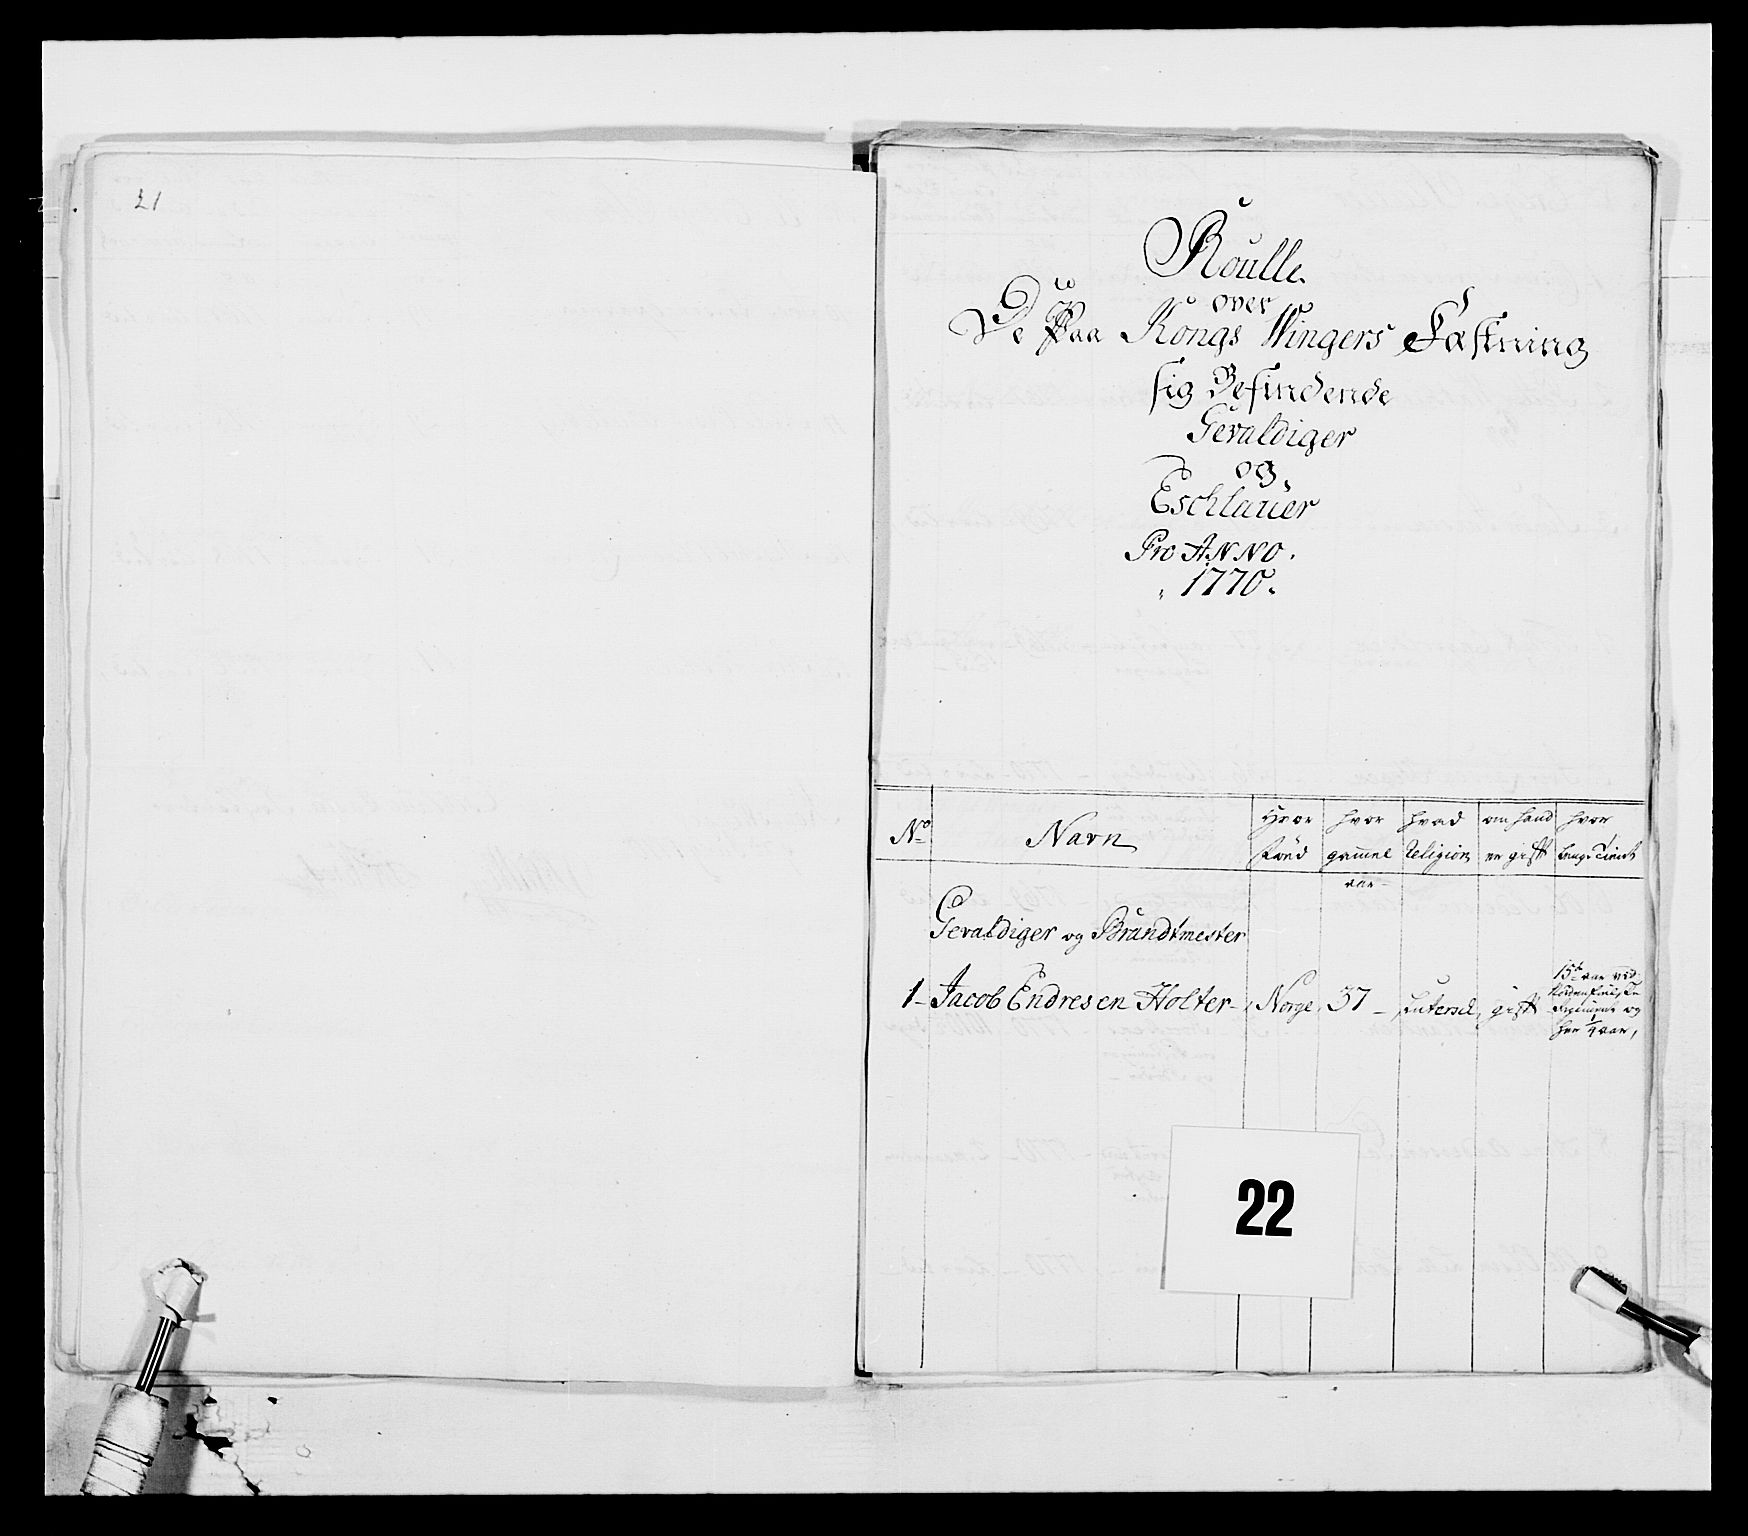 21
Roulle
over
De Paa Kongs Wingers Fæstning
sig Befindende
Gevaldiger
og
Eschlauer
Pro ANNO.
1770.
No Navn Hvor fød hvor gammel hvad Religion om hand er gift hvor lenge Tient
aar
Gevaldiger og Brandtmester
1 Jacob Endresen Holter Norge 37 Lutersch gift 15 aar ved
Regiment og
her 1/4 aar,
22